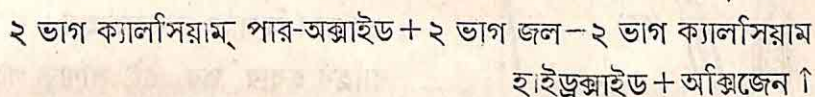 ২ ভাগ ক্যালসিয়াম্ পার-অক্সাইড + ২ ভাগ জল — ২ ভাগ ক্যালসিয়াম
হাইড্রক্সাইড + অক্সিজেন ↑